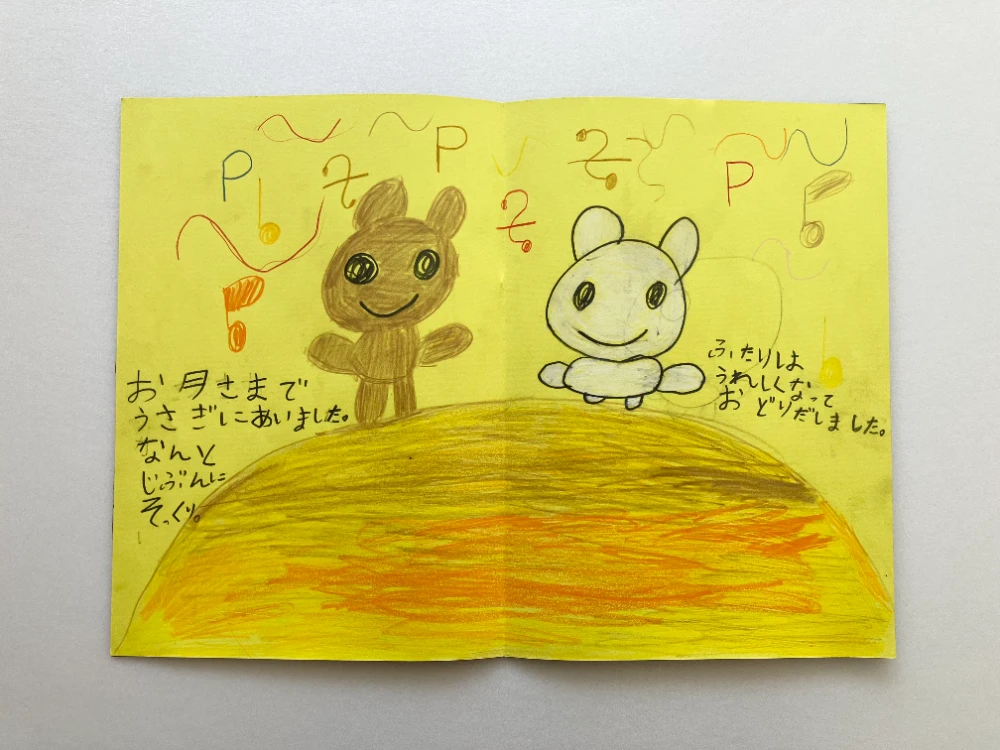 お月さまで
うさぎにあいました。
なんと
じぶんに
そっくり。
ふたりは
うれしくなって
おどりだしました。